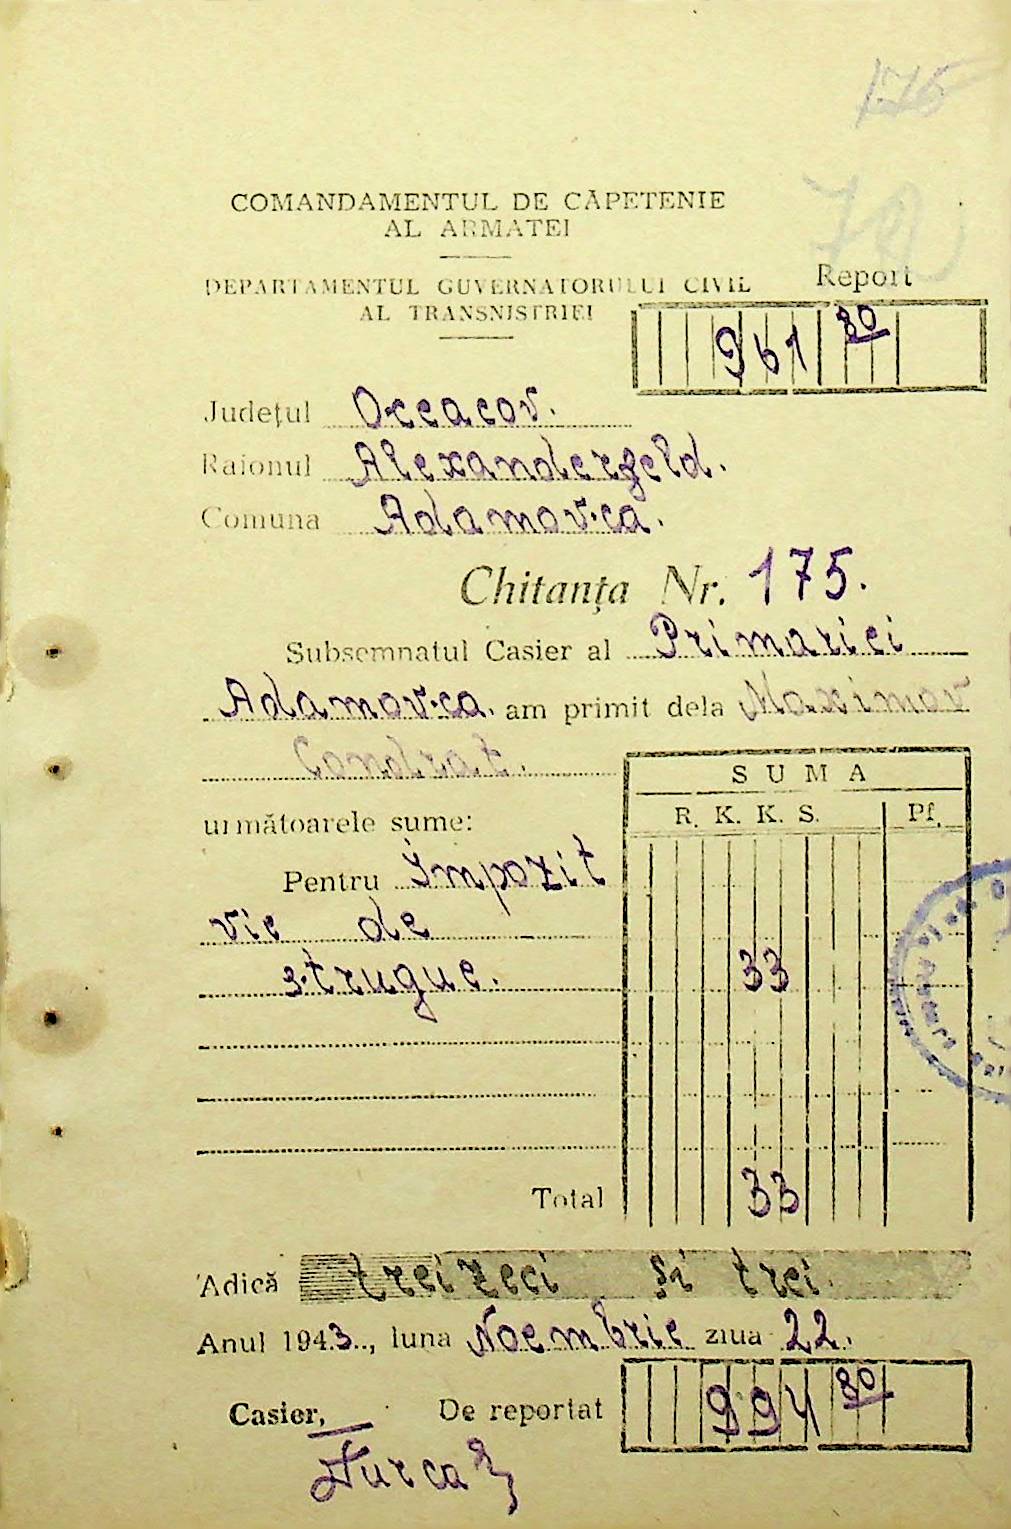 175
72
COMANDAMENTUL DE CĂPETENIE
AL ARMATEI
DEPARTAMENTUL GUVERNATORULUI CIVIL
AL TRANSNISTRIEI
Report
961 80
Județul Oceacov.
Raionul Alexanderfeld.
Comuna Adamovca.
Chitanța Nr. 175.
Subsemnatul Casier al Primariei
Adamovca. am primit dela Maximov
Condrat.
următoarele sume:
SUMA
R. K. K. S. Pf.
Pentru Impozit
vie de
strugue. 33
Total 33
Adică treizeci și trei.
Anul 1943.., luna Noembrie ziua 22.
Casier, De reportat 994 80